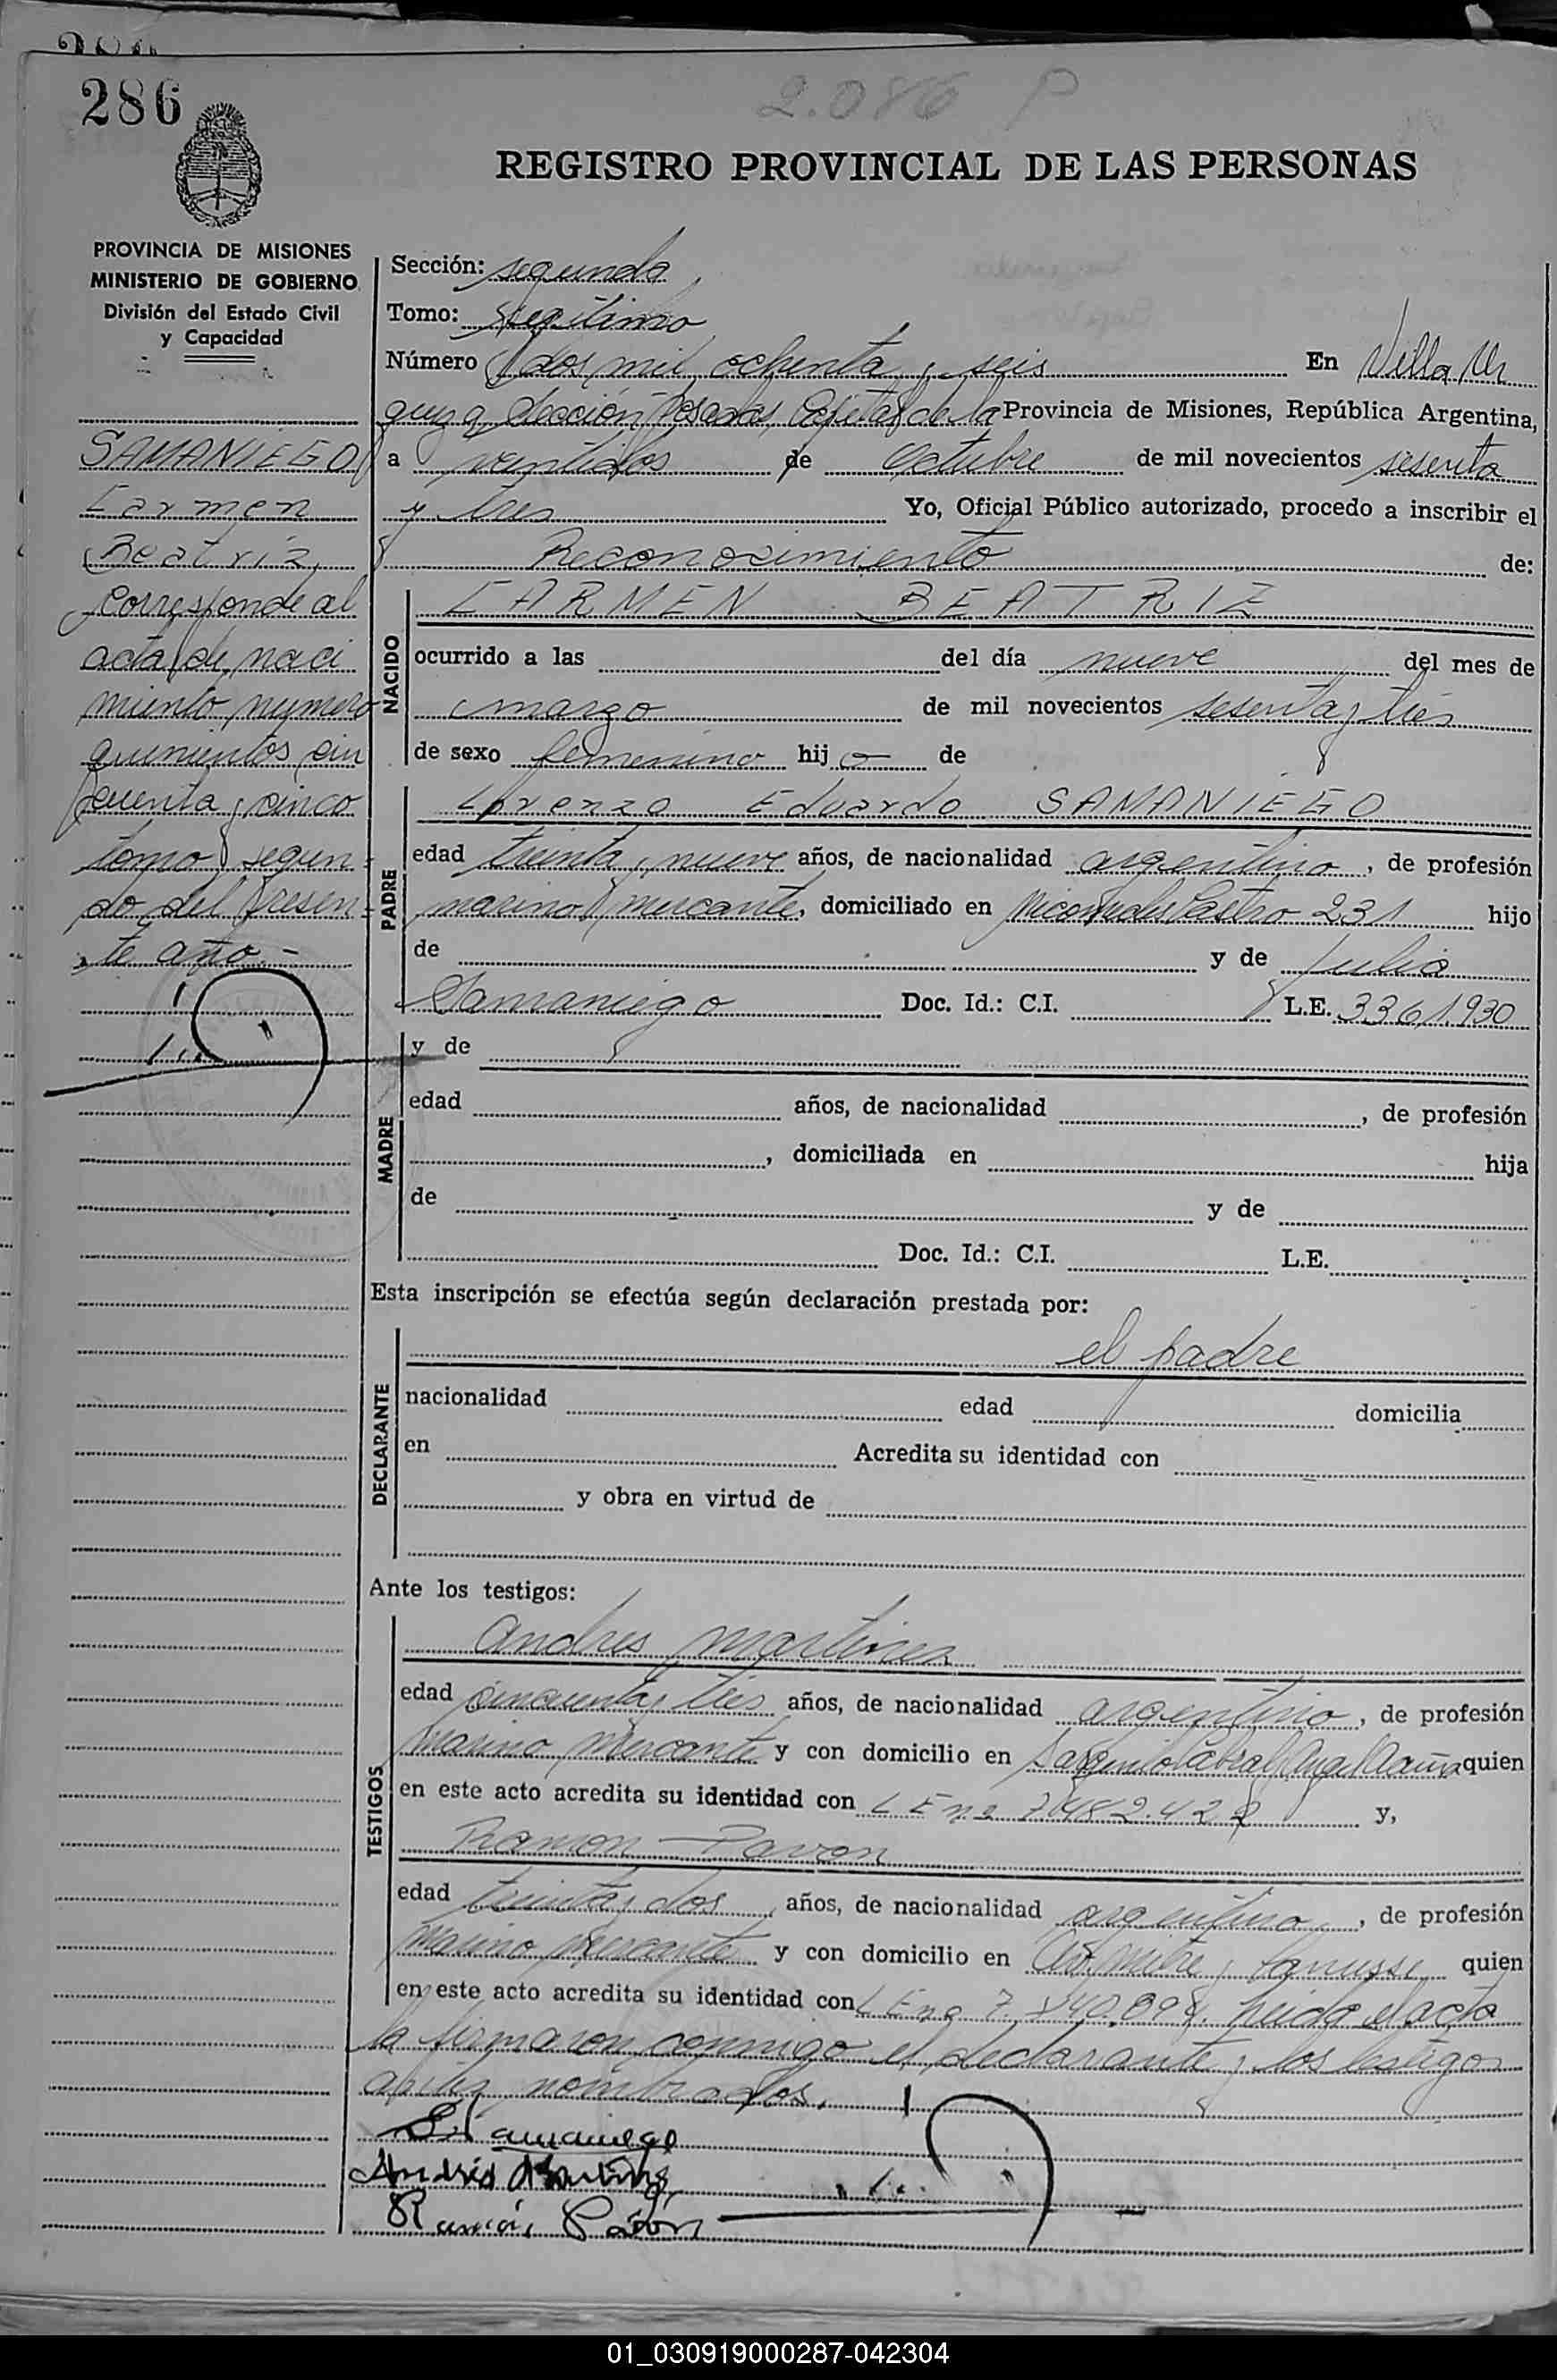 286
2.086 P
REGISTRO PROVINCIAL DE LAS PERSONAS
PROVINCIA DE MISIONES
MINISTERIO DE GOBIERNO
División del Estado Civil
y Capacidad
SAMANIEGO
Carmen
Beatriz
Corresponde al
acta de naci
miento numero
quinientos cin
cuenta y cinco
tomo segun-
do del presen-
te año.-
Sección: segunda
Tomo: Septimo
Número dos mil ochenta y seis En Villa Ur
quiza Sección Posadas, Capital de la Provincia de Misiones, República Argentina,
a veintidos de octubre de mil novecientos sesenta
y tres Yo, Oficial Público autorizado, procedo a inscribir el
Reconocimiento de:
NACIDO
CARMEN BEATRIZ
ocurrido a las del día nueve del mes de
marzo de mil novecientos sesenta y tres
de sexo femenino hij a de
PADRE
Lorenzo Eduardo SAMANIEGO
edad treinta y nueve años, de nacionalidad argentino, de profesión
marino mercante, domiciliado en Nicomedes Castro 231 hijo
de y de Julia
Samaniego Doc. Id.: C.I. L.E. 3361930
MADRE
y de
edad años, de nacionalidad , de profesión
, domiciliada en hija
de y de
Doc. Id.: C.I. L.E.
Esta inscripción se efectúa según declaración prestada por:
DECLARANTE
el padre
nacionalidad edad domicilia
en Acredita su identidad con
y obra en virtud de
Ante los testigos:
TESTIGOS
Andres Martinez
edad cincuenta y tres años, de nacionalidad argentino, de profesión
marino mercante y con domicilio en Sargento Cabral y Angel Acuña quien
en este acto acredita su identidad con L E nº 7.482.422 y,
Ramon Pavon
edad treinta y dos, años, de nacionalidad argentino, de profesión
marino mercante y con domicilio en Mitre y Lanusse quien
en este acto acredita su identidad con L E nº 7. 40.898. Leida el acta
la firmaron conmigo el declarante y los testigos
nombrados.
Samaniego
Andrés Martinez
Ramón Pavón
01_030919000287-042304